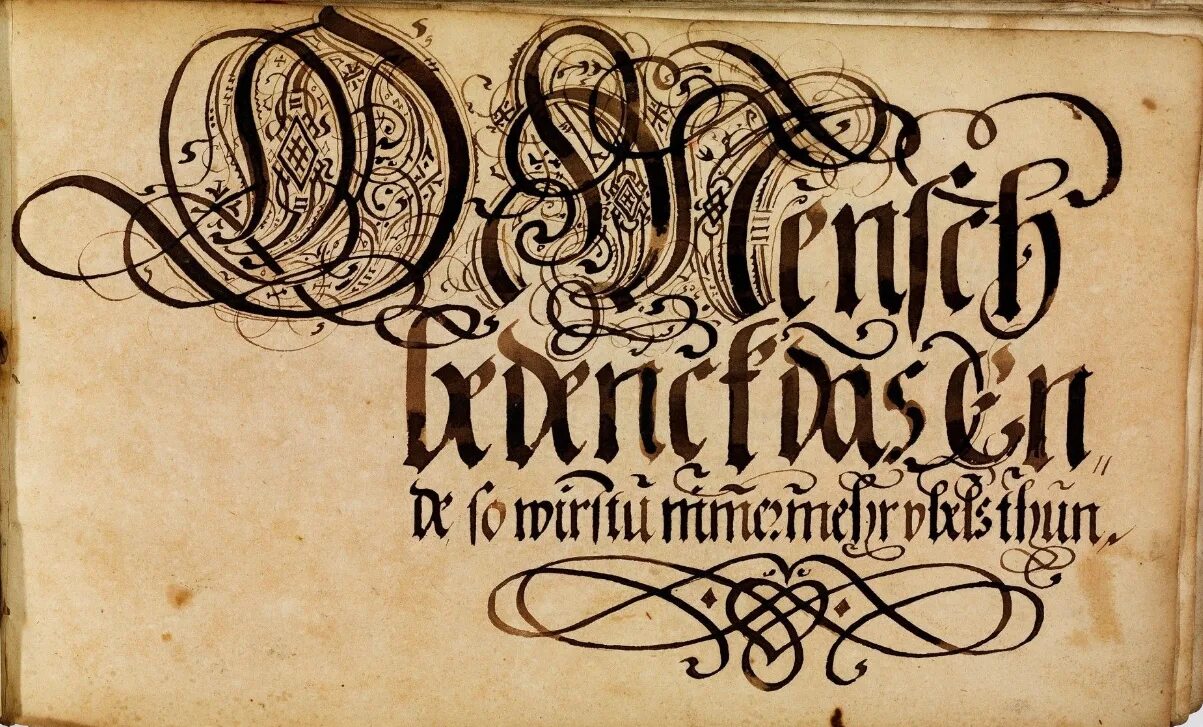 O Mensch
bedenck das En„
de so wirstu nimmermehr vbels thun.